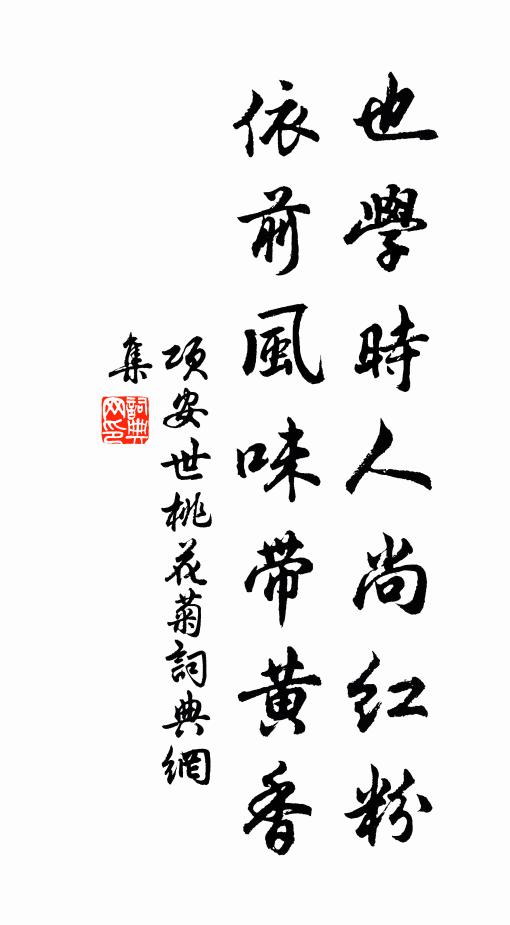 也學時人尚紅粉
依前風味帶黃香
項安世桃花菊詞典網
集
詞典
网印